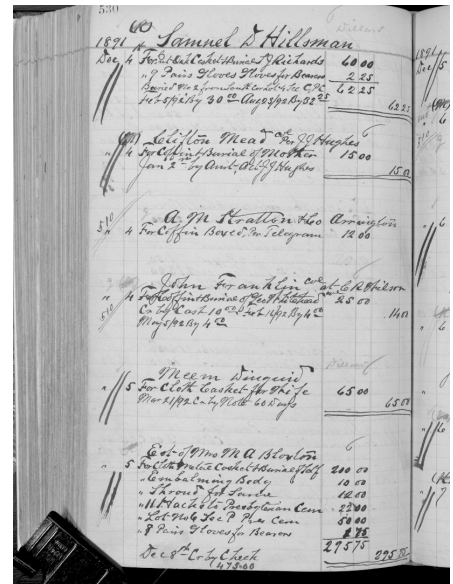 530
1891 Samuel D Hillsman
Dec 4 For Burial of Richards 60 00
" 9 Pairs Gloves for Bearers 2 25
62 25
Feb 5/92 By 30 00 Aug 5/92 By 32 25 62 25
Clifton Mead Col Per J J Hughes
" 4 For Coffin & Burial of Mother 15 00
Jan 2 by Amt J J Hughes 15 00
A M Stratton & Co Arrington
" 4 For Coffin Boxed Per Telegram 12 00
John Franklin Col at
" 4 For Coffin & Burial of 25 00
Cr by Cash 10 00 Feb 16/92 By 4 00 14 00
May 5/92 By 4 00
Meem Diuguid
" 5 For Cloth Casket for Wife 65 00
Mar 21/92 Cr by Note 60 Days 65 00
Est of Mrs M A Bloxton
" 5 For Cloth Casket & Burial of Self 200 00
" Embalming Body 10 00
" Shroud for Same 12 00
" 11 Hacks to Presbyterian Cem 22 00
" Lot No 6 Sec P Pres Cem 50 00
" 8 Pairs Gloves for Bearers 1 75
295 75
Dec 8th Cr by Check